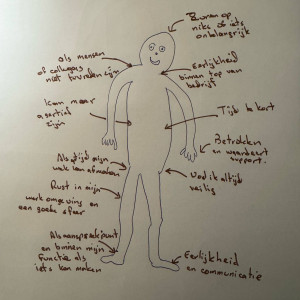 als mensen
of collega's
niet tevreden zijn
Kan meer
zijn
Als tijd mijn
werk kan afmaken
Rust in mijn
werkomgeving en
een goede sfeer
Als aanspreekpunt
en binnen mijn
functie als
iets kan maken
op
niks of iets
onbelangrijk
Eerlijkheid
binnen top van
bedrijf
Tijd te kort
Betrokken
en waardeert
support.
altijd
veilig
Eerlijkheid
en communicatie